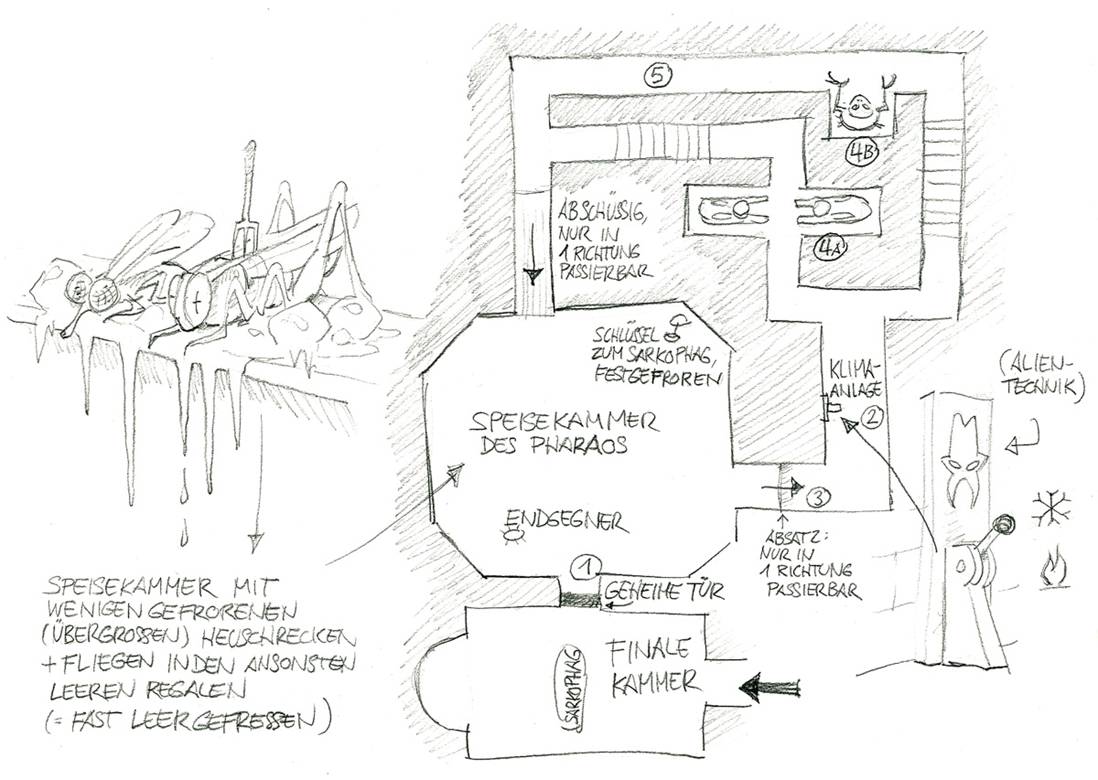 5
4B
ABSCHÜSSIG,
NUR IN
1 RICHTUNG
PASSIERBAR
4A
SCHLÜSSEL
ZUM SARKOPHAG,
FESTGEFROREN
KLIMA-
ANLAGE
2
(ALIEN-
TECHNIK)
SPEISEKAMMER
DES PHARAOS
3
ENDGEGNER
ABSATZ:
NUR IN
1 RICHTUNG
PASSIERBAR
1
GEHEIME TÜR
SPEISEKAMMER MIT
WENIGEN GEFRORENEN
(ÜBERGROSSEN) HEUSCHRECKEN
+ FLIEGEN IN DEN ANSONSTEN
LEEREN REGALEN
(= FAST LEERGEFRESSEN)
SARKOPHAG
FINALE
KAMMER